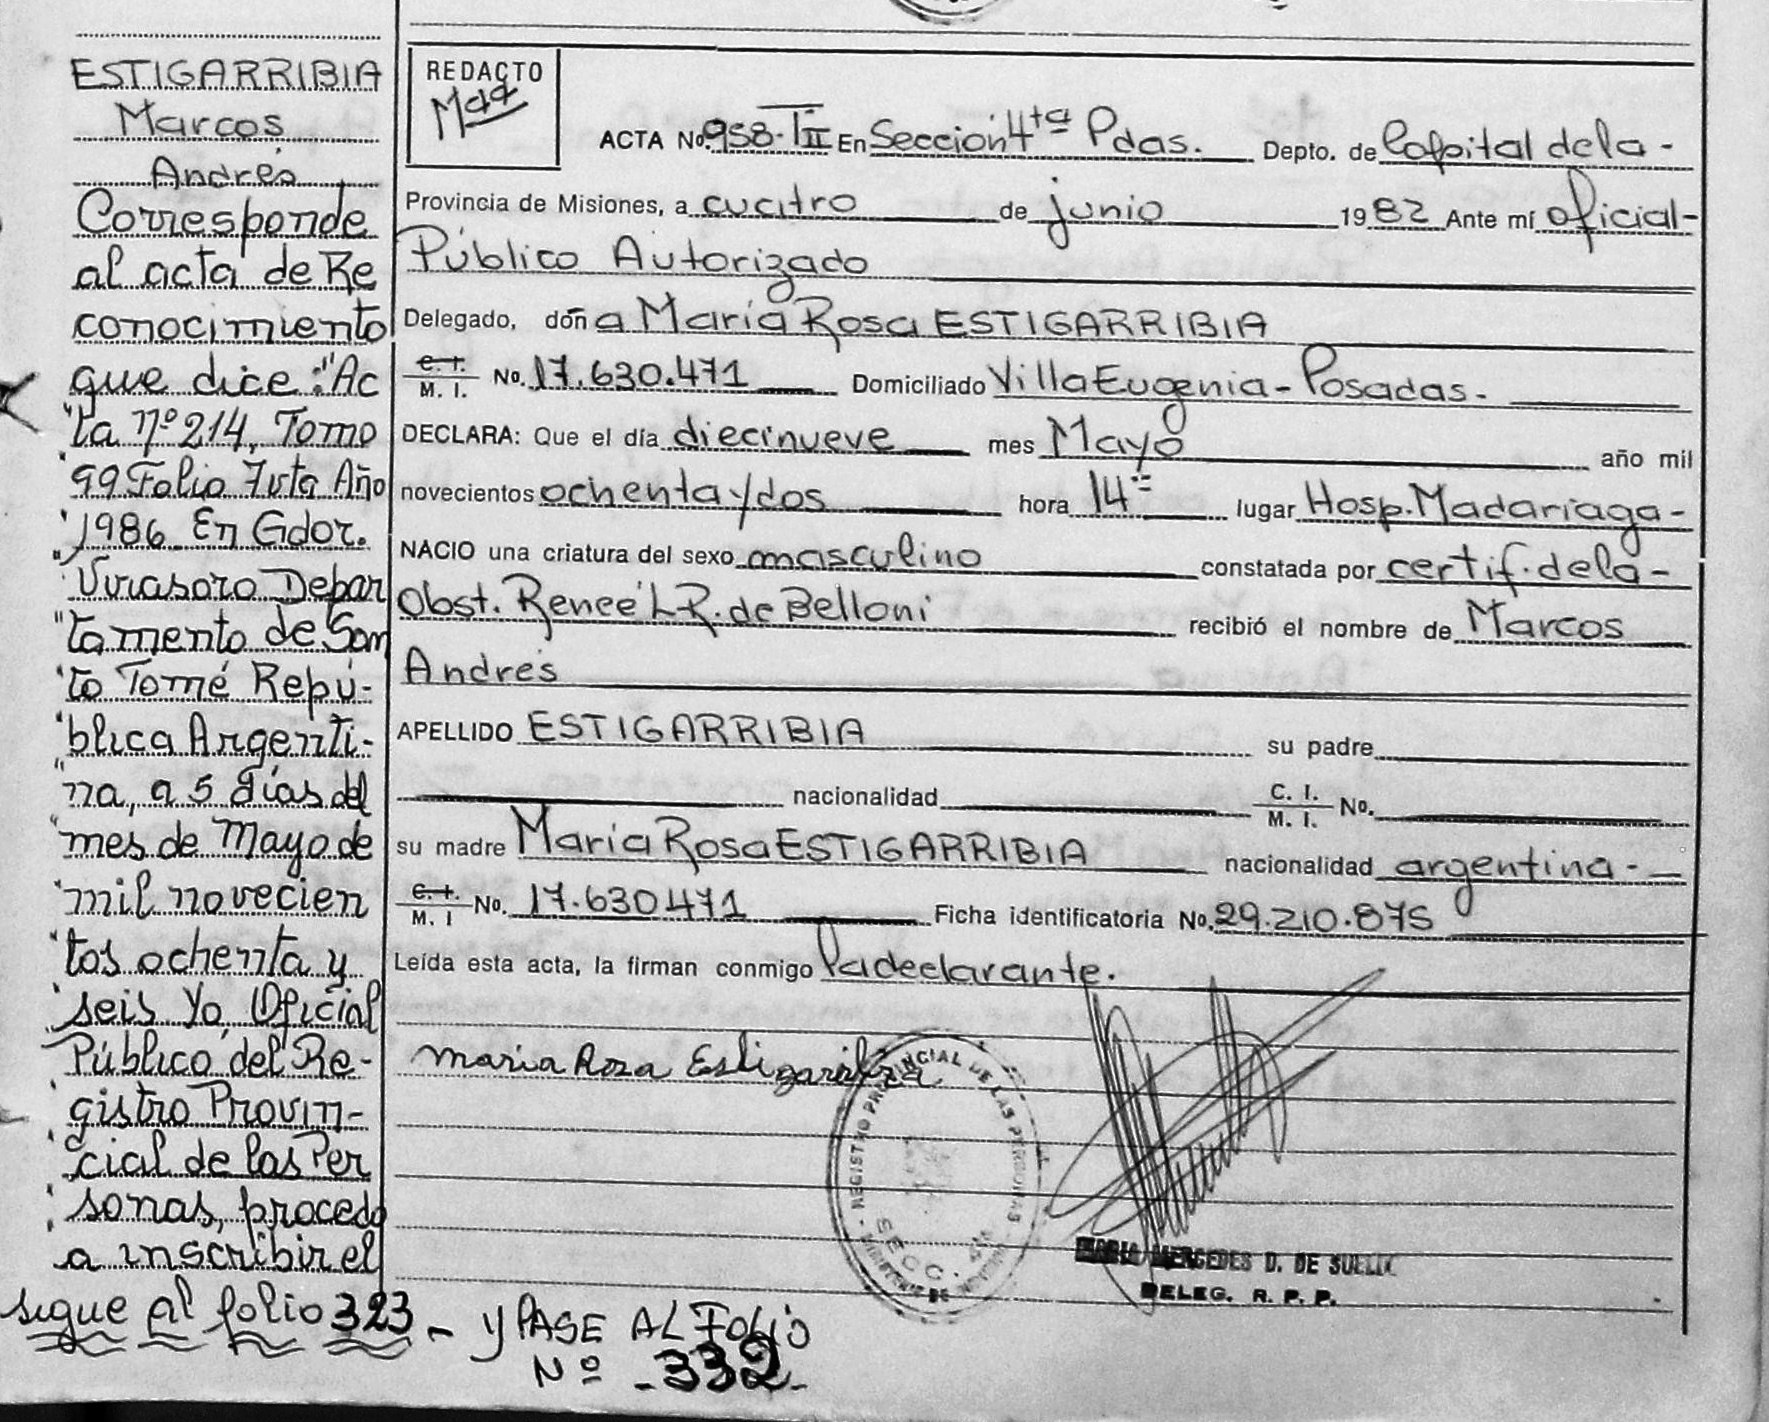 ESTIGARRIBIA
Marcos
Andrés
Corresponde
al acta de Re
conocimiento
que dice: "Ac
"ta nº 214, Tomo
"99 Folio 7 vta Año
"1986 En Gdor.
"Virasoro Depar
"tamento de San
"to Tomé Repú-
"blica Argenti-
"na, a 5 días del
"mes de Mayo de
"mil novecien
"tos ochenta y
"seis Yo, Oficial
"Público del Re-
"gistro Provin-
"cial de las Per
"sonas, procedo
a inscribir el
sigue al folio 323 - y PASE AL FOLIO
Nº - 332 -
REDACTO
ACTA No. 958-TII En Sección 4ta Pdas. Depto. de Capital de la -
Provincia de Misiones, a cuatro de junio 1982 Ante mí oficial -
Público Autorizado
Delegado, doña María Rosa ESTIGARRIBIA
C. I. / M. I. No. 17.630.471 Domiciliado Villa Eugenia - Posadas. -
DECLARA: Que el día diecinueve mes Mayo año mil
novecientos ochenta y dos hora 14 lugar Hosp. Madariaga -
NACIO una criatura del sexo masculino constatada por certif. de la -
Obst. Reneé L R. de Belloni recibió el nombre de Marcos
Andrés
APELLIDO ESTIGARRIBIA su padre
nacionalidad C. I. / M. I. No.
su madre María Rosa ESTIGARRIBIA nacionalidad argentina -
C. I. / M. I No. 17.630471 Ficha identificatoria No. 29.210.875
Leída esta acta, la firman conmigo la declarante.
maria Rosa Estigarribia
REGISTRO PROVINCIAL DE LAS PERSONAS
SECC. 4ta
MARIA MERCEDES D. DE
DELEG. R. P. P.